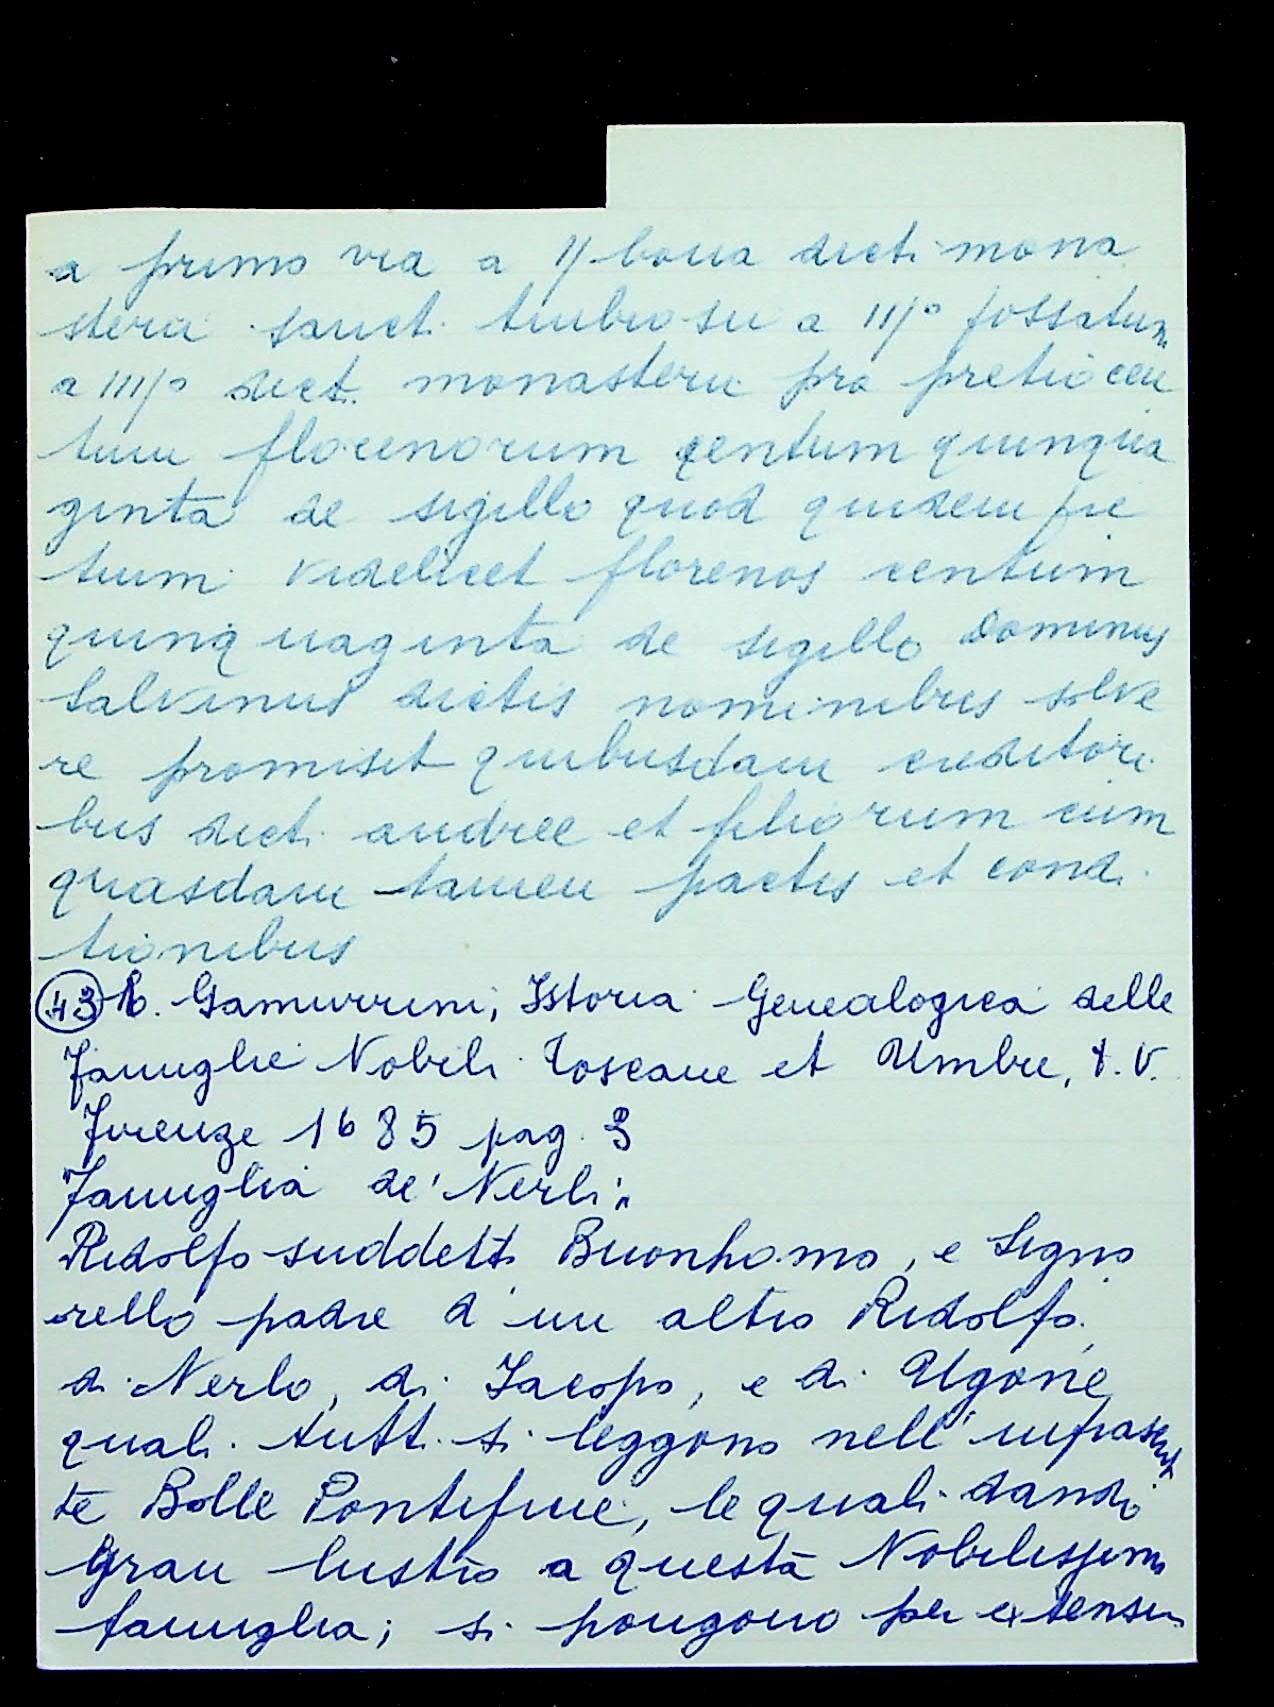 a primo via a ij bona dicti mona
sterii sancti a iijº fossatum
a iiijº dict. monasterii pro pretio cen
tum florenorum centum quinqua
ginta de sigillo quod quidem pre
tium videlicet florenos centum
quinquaginta de sigillo Dominus
Salvinus dictis nominibus solve
re promisit quibusdam creditori
bus dicti andree et filiorum cum
quasdam tamen pactis et condi
tionibus
43 E. Gamurrini, Istoria Genealogica delle
famiglie Nobili Toscane et Umbre, t. V.
Firenze 1685 pag. 3
"Famiglia de' Nerli"
Ridolfo suddetti Buonhomo, e Signo
rello padre d'un altro Ridolfo,
di Nerlo, di Iacopo, e di Ugone,
quali tutti si leggono nell'infrascrit
te Bolle Pontificie, le quali dando
gran lustro a questa Nobilissima
famiglia; si pongono per extensum